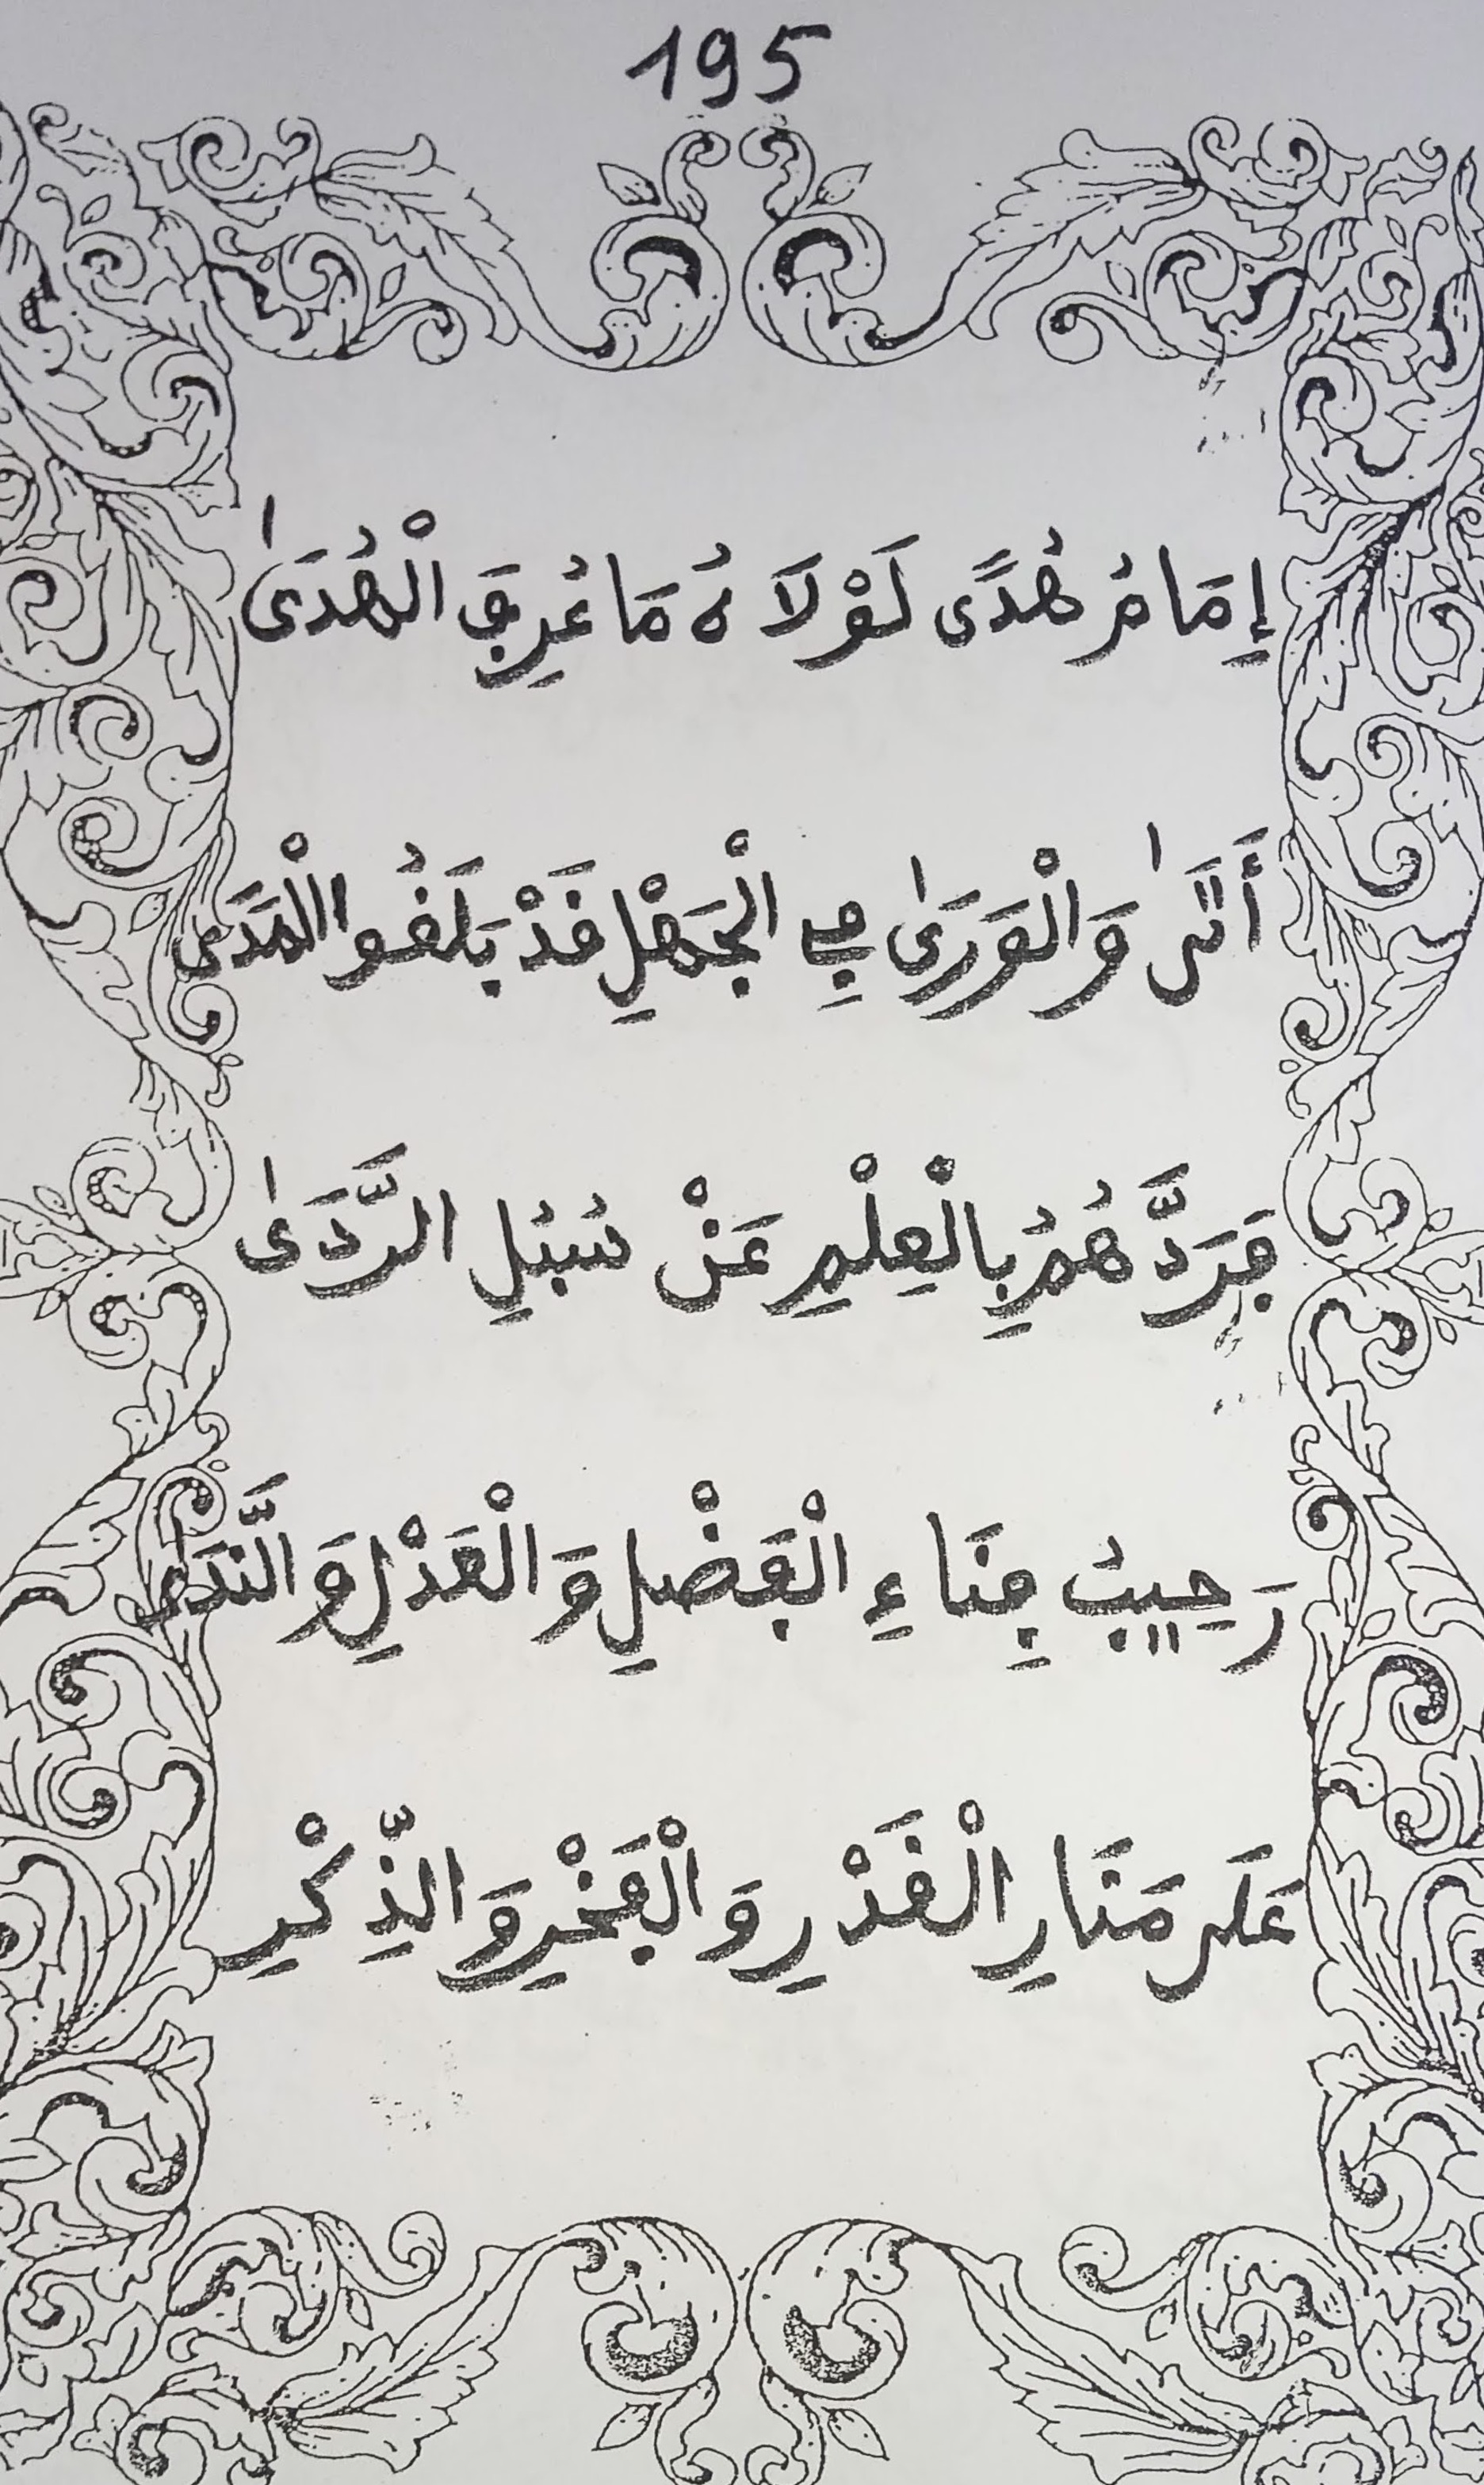 195
إِمَامُ هُدًى لَوْلَاهُ مَا عُرِفَ الْهُدَىٰ
أَتَىٰ وَالْوَرَىٰ فِي الْجَهْلِ قَدْ بَلَغُوا الْمَدَى
فَرَدَّهُمُ بِالْعِلْمِ عَنْ سُبُلِ الرَّدَىٰ
رَحِيبُ فِنَاءِ الْفَضْلِ وَالْعَدْلِ وَالنَّدَى
عَلَى مَنَارِ الْقَدْرِ وَالْفَخْرِ وَالذِّكْرِ